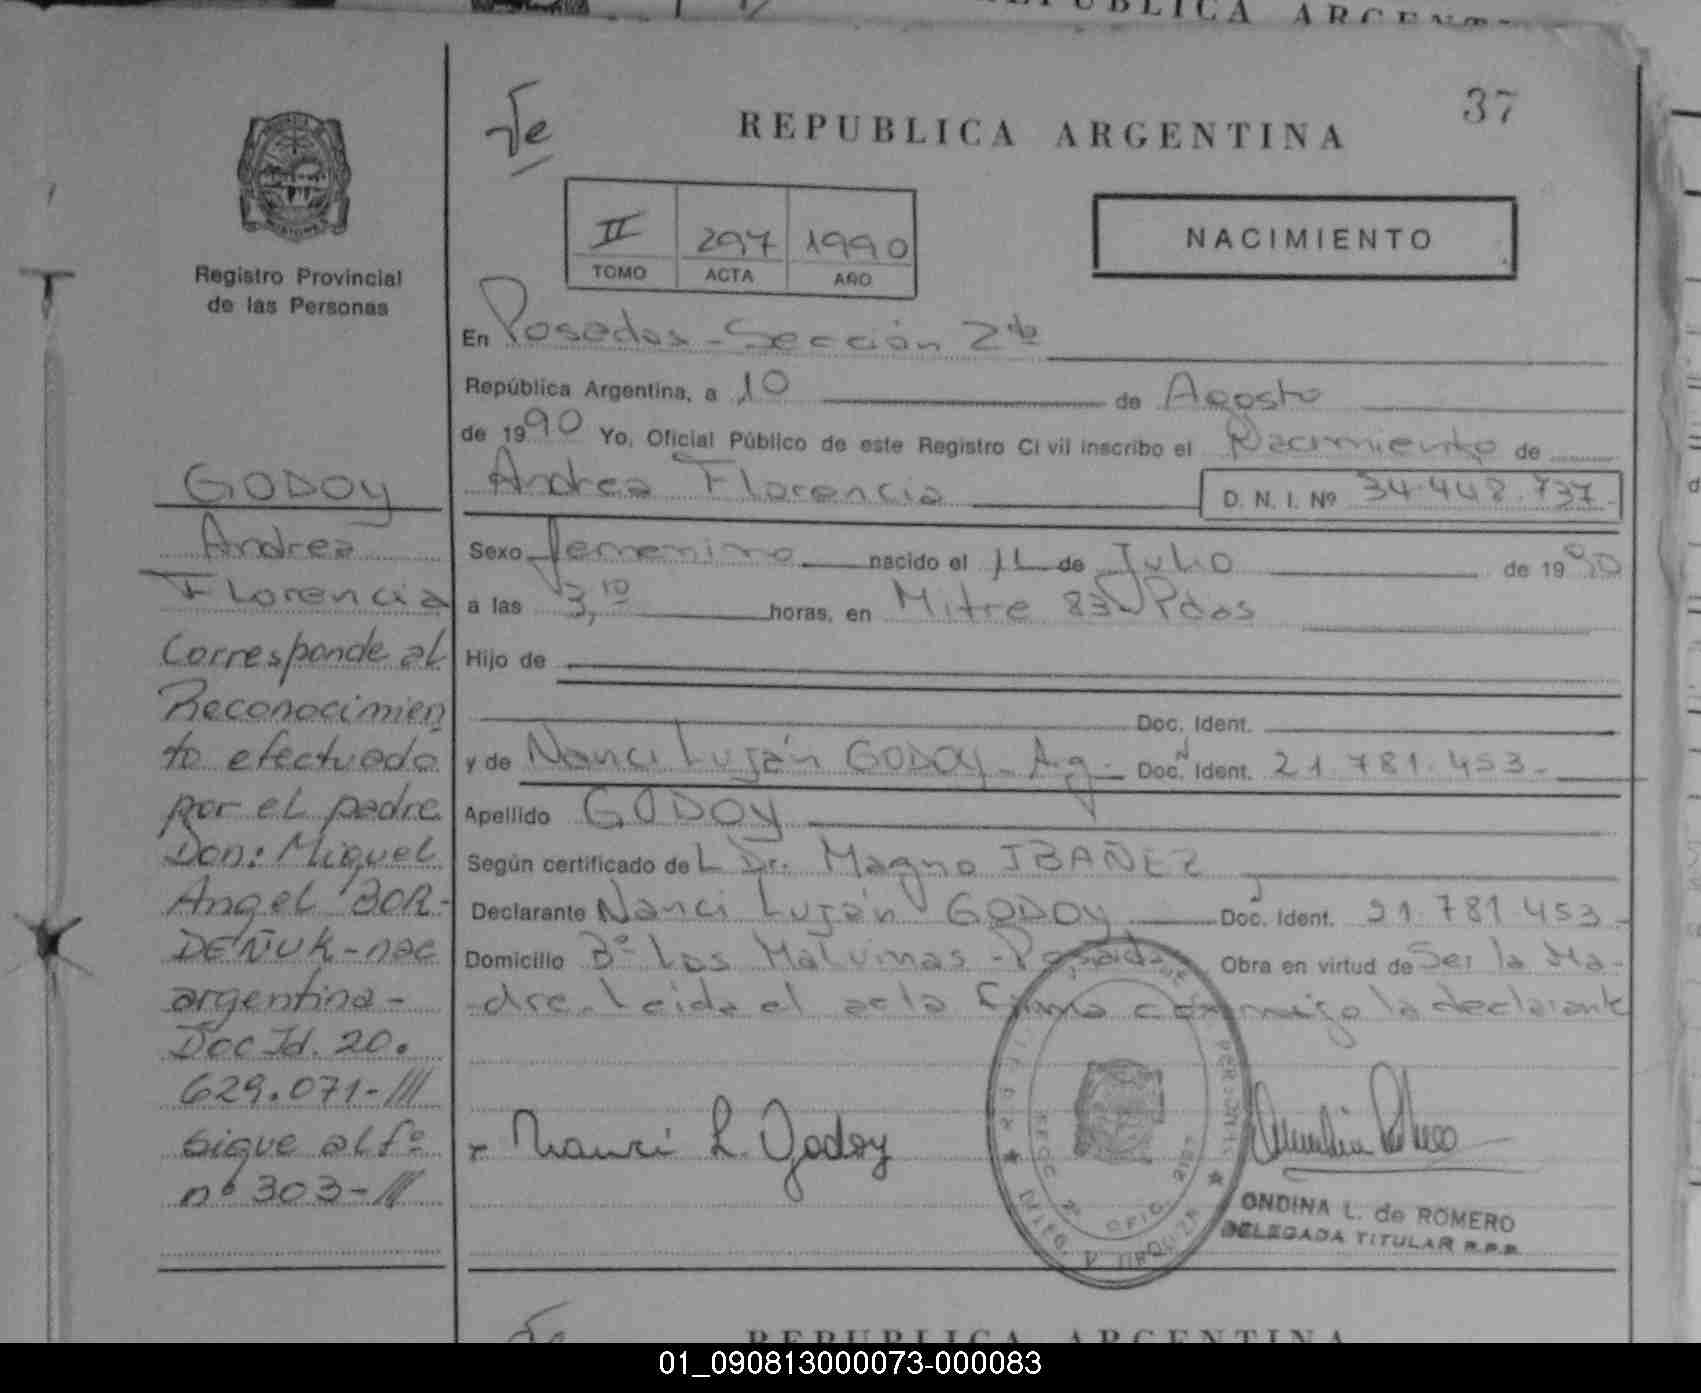 REPUBLICA ARGENT
37
REPUBLICA ARGENTINA
II 297 1990
TOMO ACTA AÑO
NACIMIENTO
Registro Provincial
de las Personas
En Posadas - Sección 2da
República Argentina, a 10 de Agosto
de 1990 Yo, Oficial Público de este Registro Civil inscribo el Nacimiento de
Andrea Florencia D. N. I. Nº 34.448.737.
Sexo femenino nacido el 11 de Julio de 1990
a las 3,10 horas, en Mitre 83 Pdas
Hijo de
Doc. Ident.
y de Nanci Luján GODOY - Ag. Doc. Ident. 21.781.453-
Apellido GODOY
Según certificado del Dr. Magno IBAÑEZ
Declarante Nanci Luján GODOY Doc. Ident. 21.781.453-
Domicilio Bº Las Malvinas - Posadas Obra en virtud de Ser la Ma-
dre. Leida el acta firma conmigo la declarante
Nanci L. Godoy
ONDINA L. de ROMERO
DELEGADA TITULAR R.P.P.
GODOY
Andrea
Florencia
Corresponde al
Reconocimien
to efectuado
por el padre
Don: Miguel
Angel BOR-
DEÑUK - nac
argentina-
Doc Id. 20.
629.071-///
Sigue al fº
nº 303-///
REPUBLICA ARGENTINA
01_090813000073-000083